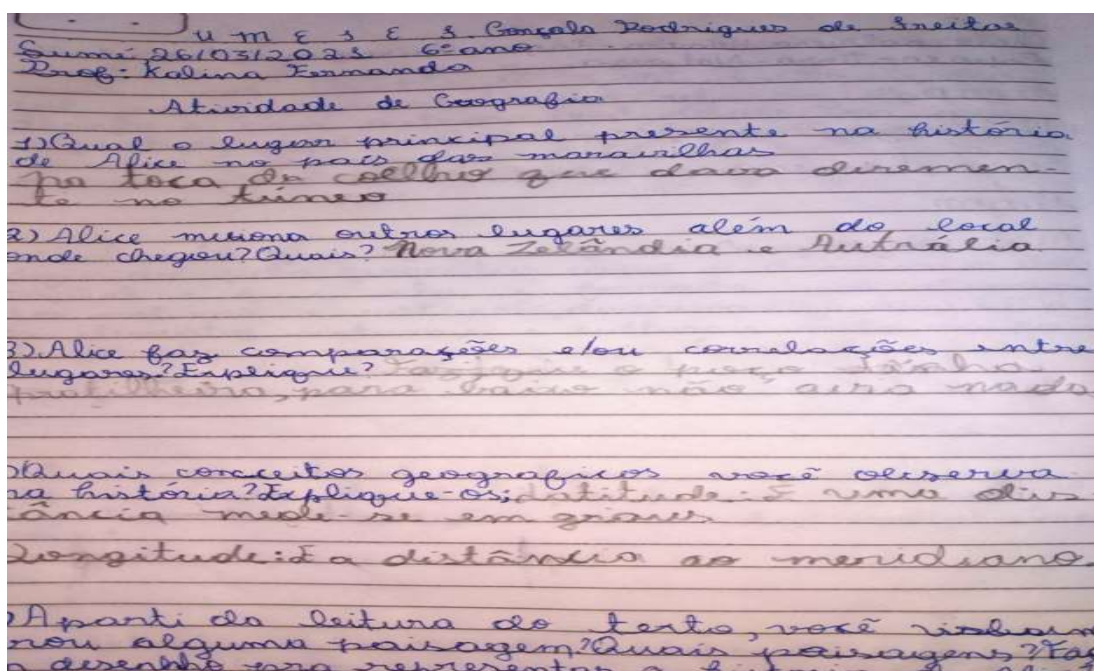 U M E I E F Gonçalo Rodrigues de Freitas
Sumé 26/03/2021 6º ano
Prof: Kalina Fernanda
Atividade de Geografia
1) Qual o lugar principal presente na história
de Alice no país das maravilhas
na toca do coelho que dava diremen-
te no túneo
2) Alice menciona outros lugares além do local
onde chegou? Quais? Nova Zelândia e Autrália
3) Alice faz comparações e/ou correlações entre
lugares? Explique?
para baixo não nada
Quais conceitos geograficos você observa
na história? Explique-os; Latitude: É uma dis
tância medi-se em graus
Longitude: É a distância ao meridiano
Aparti da leitura do texto, você
alguma paisagem? Quais paisagens? Faç
desenho para representar a